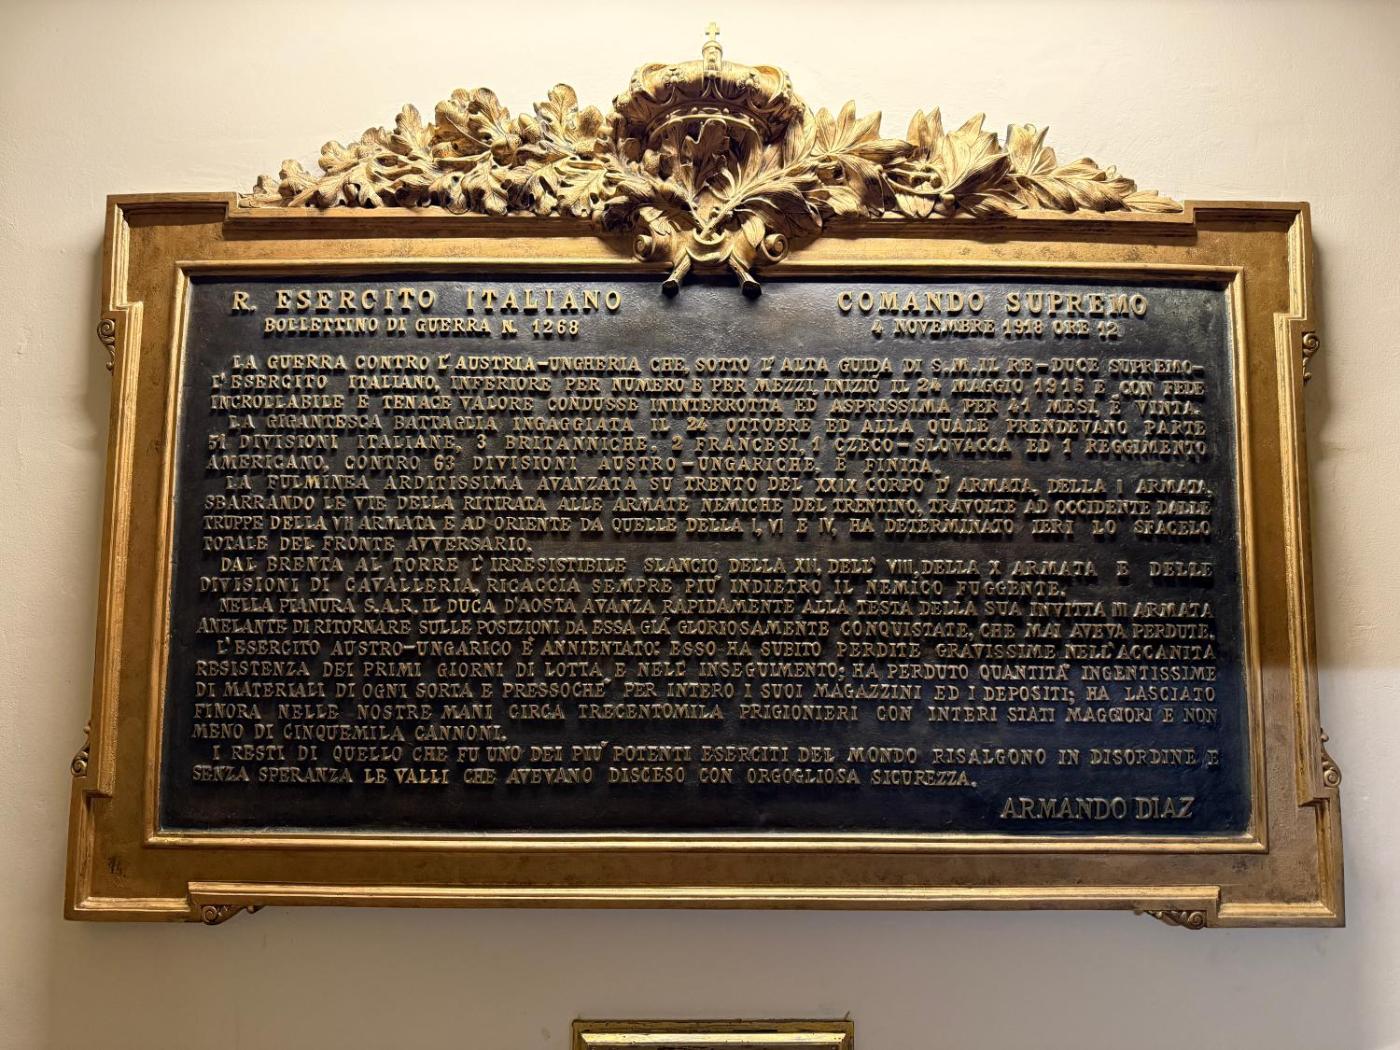 R. ESERCITO ITALIANO COMANDO SUPREMO
BOLLETTINO DI GUERRA N. 1268 4 NOVEMBRE 1918 ORE 12
LA GUERRA CONTRO L'AUSTRIA-UNGHERIA CHE, SOTTO L'ALTA GUIDA DI S.M. IL RE-DUCE SUPREMO-
L'ESERCITO ITALIANO, INFERIORE PER NUMERO E PER MEZZI, INIZIÒ IL 24 MAGGIO 1915 E CON FEDE
INCROLLABILE E TENACE VALORE CONDUSSE ININTERROTTA ED ASPRISSIMA PER 41 MESI, È VINTA.
LA GIGANTESCA BATTAGLIA INGAGGIATA IL 24 OTTOBRE ED ALLA QUALE PRENDEVANO PARTE
51 DIVISIONI ITALIANE, 3 BRITANNICHE, 2 FRANCESI, 1 CZECO-SLOVACCA ED 1 REGGIMENTO
AMERICANO, CONTRO 63 DIVISIONI AUSTRO-UNGARICHE, È FINITA.
LA FULMINEA ARDITISSIMA AVANZATA SU TRENTO DEL XXIX CORPO D'ARMATA, DELLA I ARMATA,
SBARRANDO LE VIE DELLA RITIRATA ALLE ARMATE NEMICHE DEL TRENTINO, TRAVOLTE AD OCCIDENTE DALLE
TRUPPE DELLA VII ARMATA E AD ORIENTE DA QUELLE DELLA I, VI E IV, HA DETERMINATO IERI LO SFACELO
TOTALE DEL FRONTE AVVERSARIO.
DAL BRENTA AL TORRE L'IRRESISTIBILE SLANCIO DELLA XII, DELL' VIII, DELLA X ARMATA E DELLE
DIVISIONI DI CAVALLERIA, RICACCIA SEMPRE PIU' INDIETRO IL NEMICO FUGGENTE.
NELLA PIANURA S.A.R. IL DUCA D'AOSTA AVANZA RAPIDAMENTE ALLA TESTA DELLA SUA INVITTA III ARMATA
ANELANTE DI RITORNARE SULLE POSIZIONI DA ESSA GIÀ GLORIOSAMENTE CONQUISTATE, CHE MAI AVEVA PERDUTE.
L'ESERCITO AUSTRO-UNGARICO È ANNIENTATO: ESSO HA SUBITO PERDITE GRAVISSIME NELL'ACCANITA
RESISTENZA DEI PRIMI GIORNI DI LOTTA E NELL' INSEGUIMENTO; HA PERDUTO QUANTITA' INGENTISSIME
DI MATERIALI DI OGNI SORTA E PRESSOCHE' PER INTERO I SUOI MAGAZZINI ED I DEPOSITI; HA LASCIATO
FINORA NELLE NOSTRE MANI CIRCA TRECENTOMILA PRIGIONIERI CON INTERI STATI MAGGIORI E NON
MENO DI CINQUEMILA CANNONI.
I RESTI DI QUELLO CHE FU UNO DEI PIU' POTENTI ESERCITI DEL MONDO RISALGONO IN DISORDINE E
SENZA SPERANZA LE VALLI CHE AVEVANO DISCESO CON ORGOGLIOSA SICUREZZA.
ARMANDO DIAZ